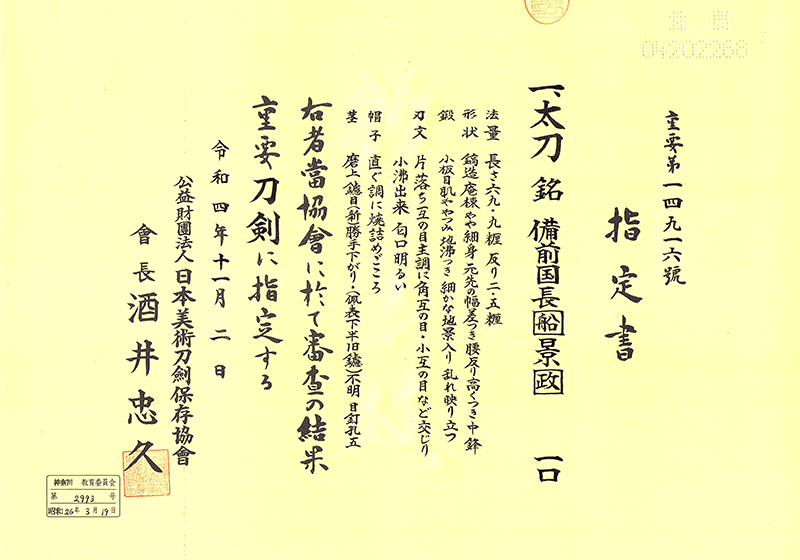 重要第一四九一六號
指定書
一、太刀 銘 備前国長船景政 一口
法量 長さ六九・九糎 反り二・五糎
形状 鎬造庵棟やや細身 元先の幅差つき腰反り高くつき中鋒
鍛 小板目肌ややつみ 地沸つき 細かな地景入り 乱れ映り立つ
刃文 片落ち互の目主調に角互の目・小互の目など交じり
小沸出来 匂口明るい
帽子 直ぐ調に焼詰めごころ
茎 磨上 鑢目(新)勝手下がり・(佩表下半旧鑢)不明 目釘孔五
右者當協會に於て審査の結果
重要刀剣に指定する
令和四年十一月二日
公益財團法人日本美術刀劍保存協會
會長 酒井忠久
04202268
神奈川 教育委員会
第 2993 号
昭和26年3月19日